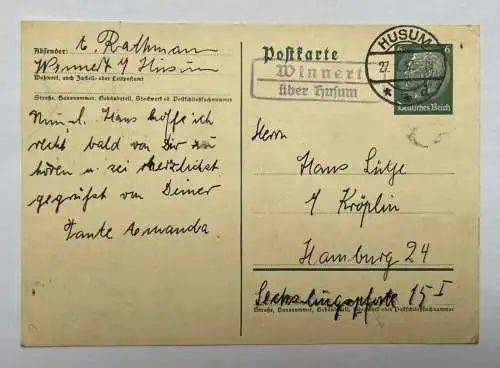 Absender: A. Rathman
Winnert / Husum
Wohnort, auch Zustell- oder Leitpostamt
Straße, Hausnummer, Gebäudeteil, Stockwerk od. Postschließfachnummer
Nun l. Hans hoffe ich
recht bald von Dir zu
hören u. sei herzlichst
gegrüßt von Deiner
Tante Amanda
Postkarte
Winnert
über Husum
HUSUM
27.
d
6
6
Deutsches Reich
Herrn
Hans Lütje
Kröplin
Hamburg 24
Sechslingspforte 15 I
Straße, Hausnummer, Gebäudeteil, Stockwerk oder Postschließfachnummer